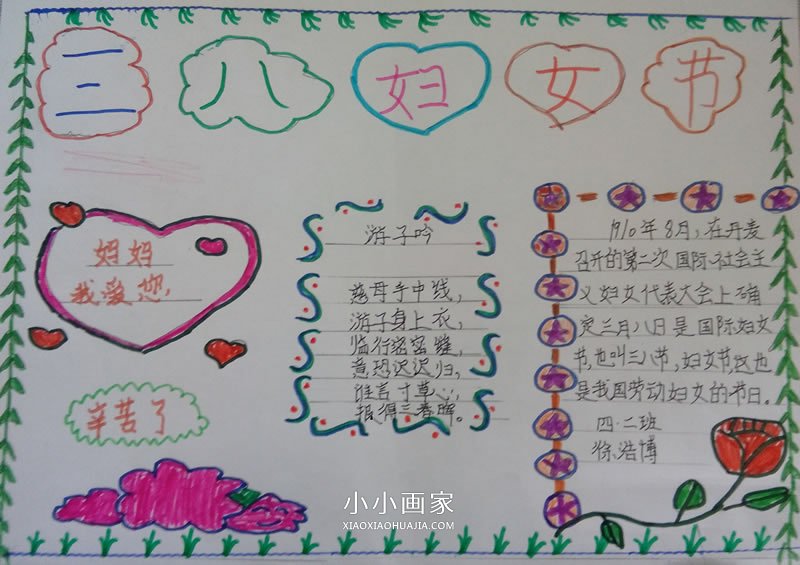 三八妇女节
妈妈
我爱您,
辛苦了
游子吟
慈母手中线,
游子身上衣,
临行密密缝,
意恐迟迟归,
谁言寸草心,
报得三春晖。
1910年8月,在丹麦
召开的第二次国际社会主
义妇女代表大会上确
定三月八日是国际妇女
节,也叫三八节,妇女节这也
是我国劳动妇女的节日。
四.二班
徐浩博
小小画家
XIAOXIAOHUAJIA.COM